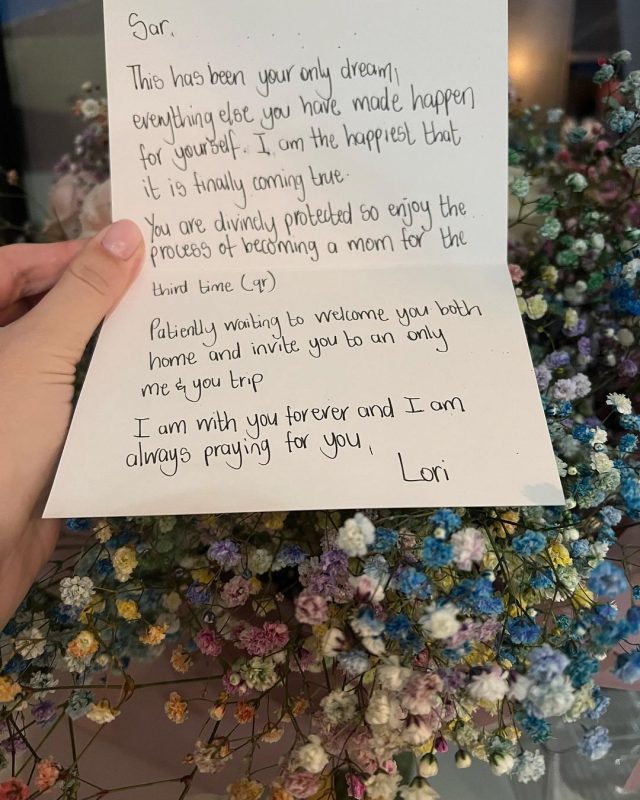 Sar,
This has been your only dream,
everything else you have made happen
for yourself. I am the happiest that
it is finally coming true.
You are divinely protected so enjoy the
process of becoming a mom for the
third time (qr)
Patiently waiting to welcome you both
home and invite you to an only
me & you trip
I am with you forever and I am
always praying for you,
Lori